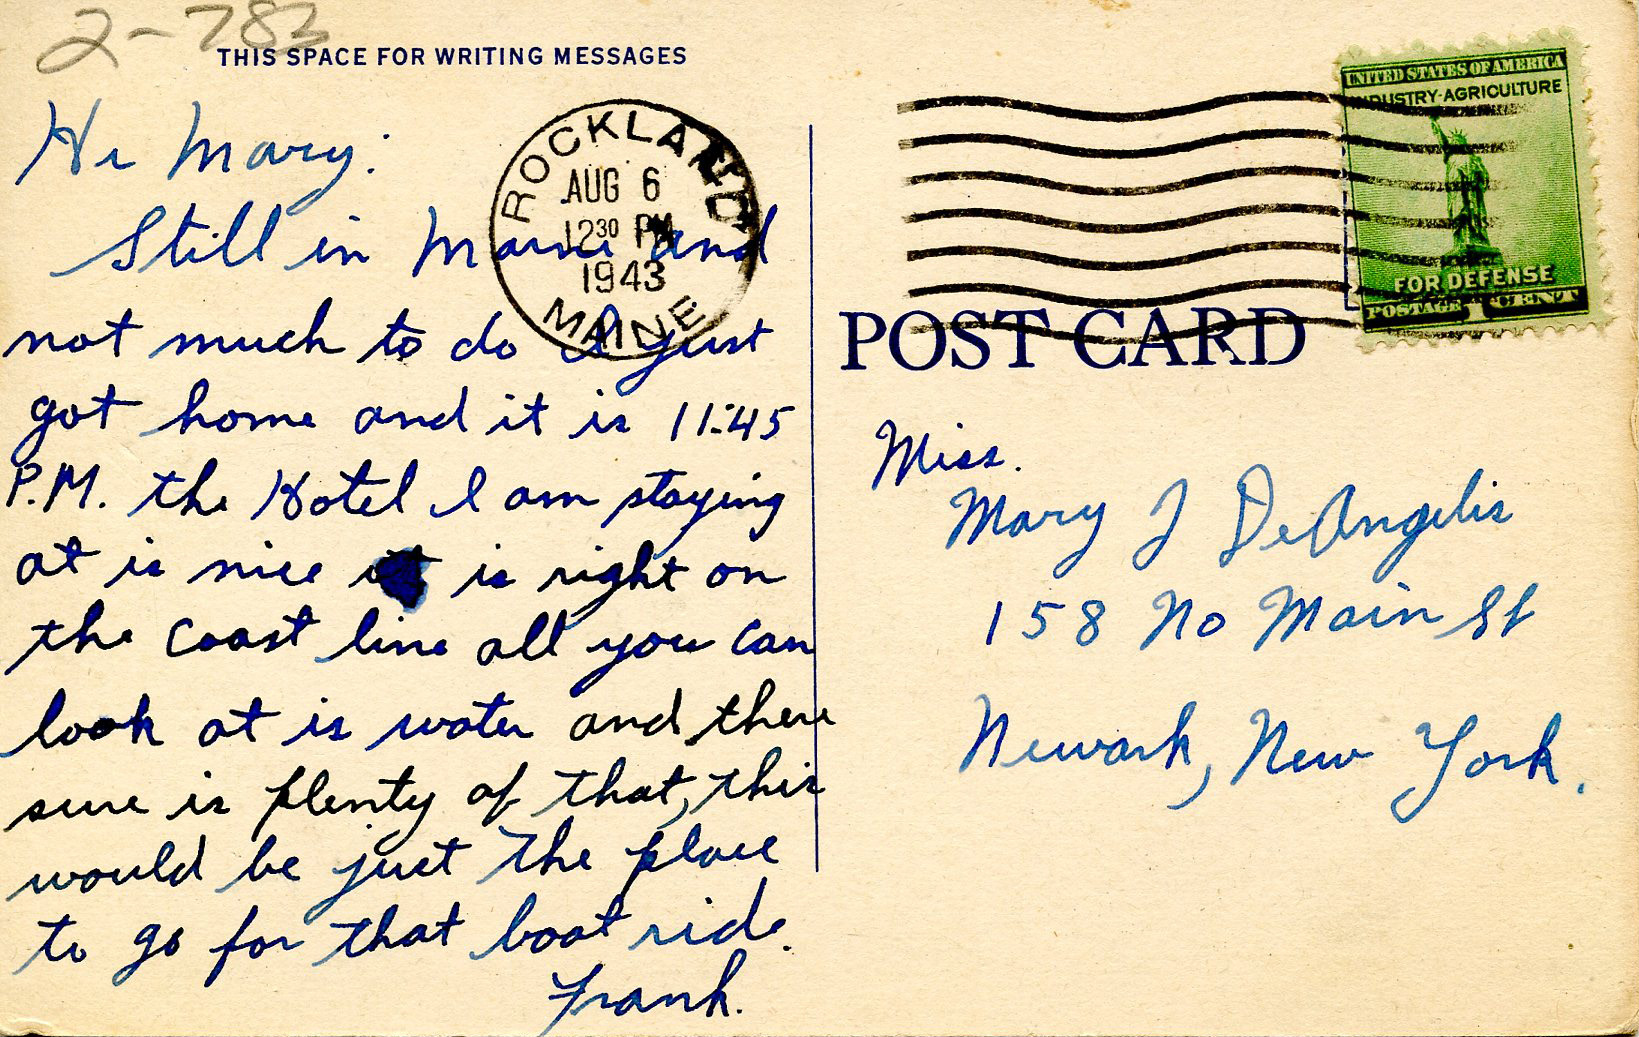 2-783
THIS SPACE FOR WRITING MESSAGES
Hi Mary:
Still in Maine and
not much to do I just
got home and it is 11:45
P.M. the Hotel I am staying
at is nice it is right on
the coast line all you can
look at is water and there
sure is plenty of that, this
would be just the place
to go for that boat ride.
Frank.
ROCKLAND
AUG 6
12 30 PM
1943
MAINE
UNITED STATES OF AMERICA
INDUSTRY-AGRICULTURE
FOR DEFENSE
POSTAGE 1 CENT
POST CARD
Miss.
Mary J DeAngelis
158 No Main St
Newark, New York.